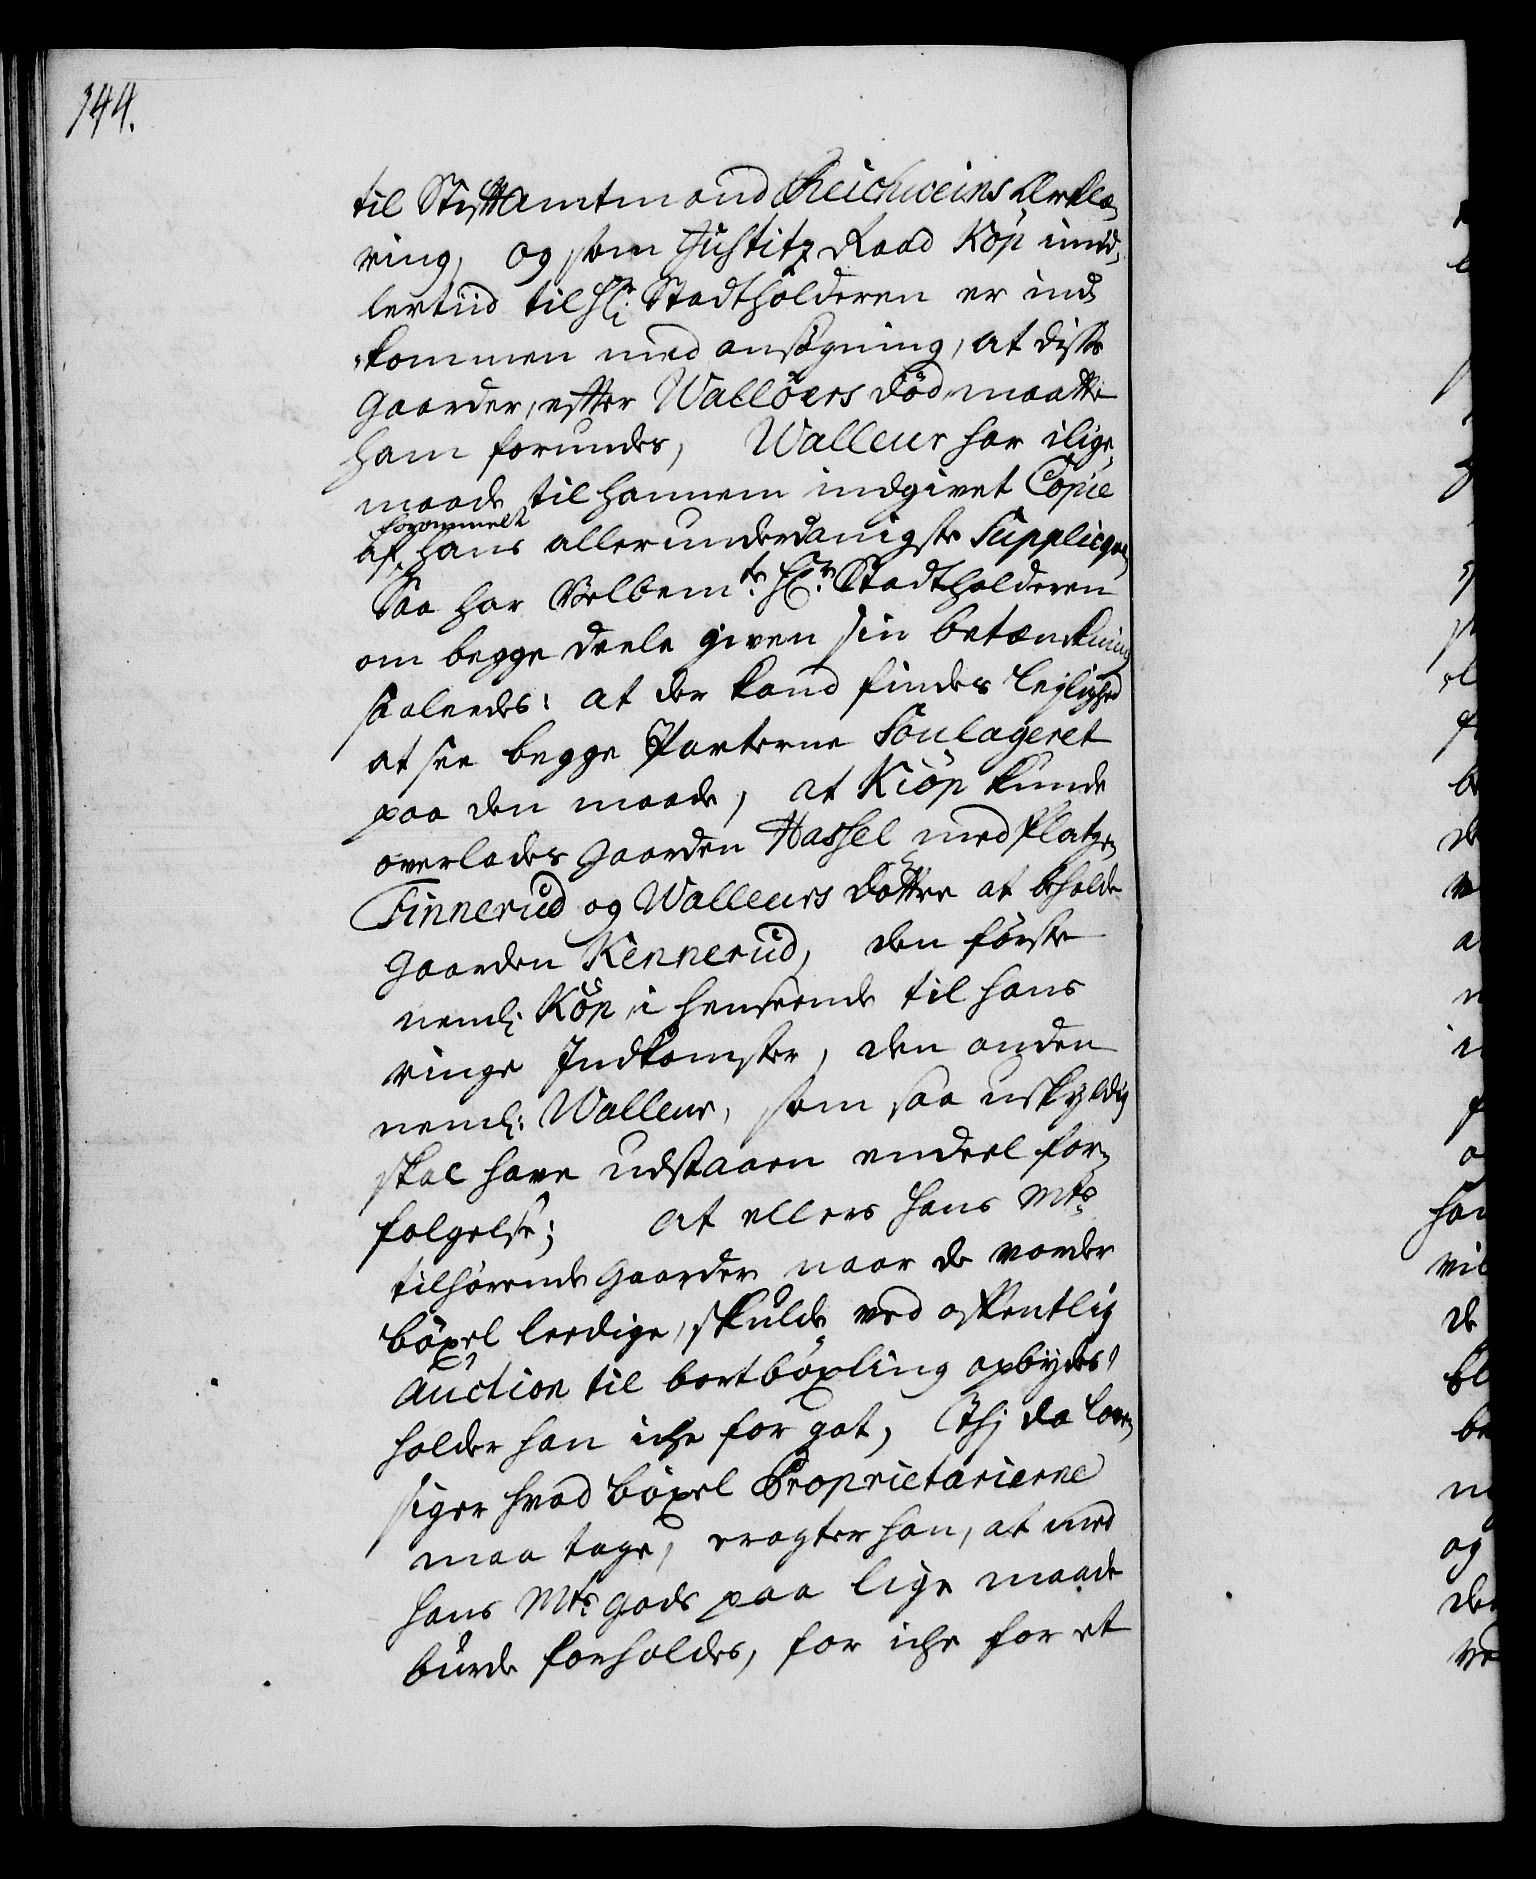 144.
til Stiftamtmand Reichweins Erklæ-
ring, og som Justitz Raad Köp imid-
lertiid til Hr: Stadtholderen er ind-
kommen med ansögning, at disse
Gaarder, efter Walløers död maatte
ham forundes, Walleur har i lige-
maade til hannem indgivet Copie
forommelt
af hans allerunderdanigste Supplicqve,
Saa har Velbemte Hr: Stadtholderen
om begge deele given sin betænkning
saaleedes: at der kand findes lejlighed
at see begge Parterne Soulageret
paa den maade, at Kiöp kunde
overlades Gaarden Hassel med Platzen
Finnerud og Walleurs Döttre at beholde
Gaarden Kennerud, den förste
neml: Köp i henseende til hans
ringe Indkomster, den anden
neml: Walleur, som saa uskyldig
skal have udstaaen endeel for-
folgelse; at ellers hans Mts
tilhörende Gaarder naar de vorder
böxel leedige, skulde ved offentlig
Auction til bortböxling opbydes,
holder han iche for got, Thj da Loven
siger hvad böxel Proprietarierne
maa tage, eragter han, at med
hans Mts Gods paa lige maade
burde forholdes, for iche for et